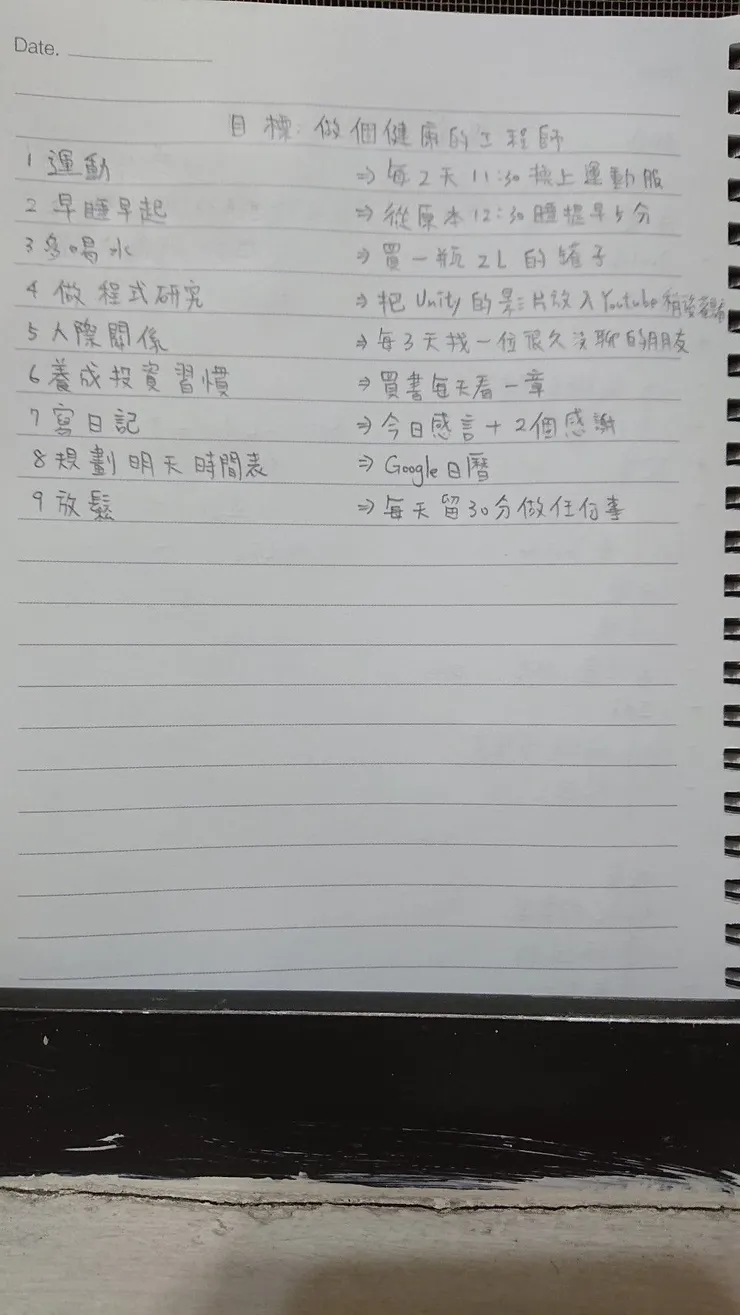 Date.
目標:做個健康的工程師
1 運動 ⇒ 每2天 11:30 換上運動服
2 早睡早起 ⇒ 從原本12:30睡提早5分
3 多喝水 ⇒ 買一瓶2L的罐子
4 做程式研究 ⇒ 把Unity的影片放入Youtube稍後觀看
5 人際關係 ⇒ 每3天找一位很久沒聊的朋友
6 養成投資習慣 ⇒ 買書每天看一章
7 寫日記 ⇒ 今日感言+2個感謝
8 規劃明天時間表 ⇒ Google日曆
9 放鬆 ⇒ 每天留30分做任何事